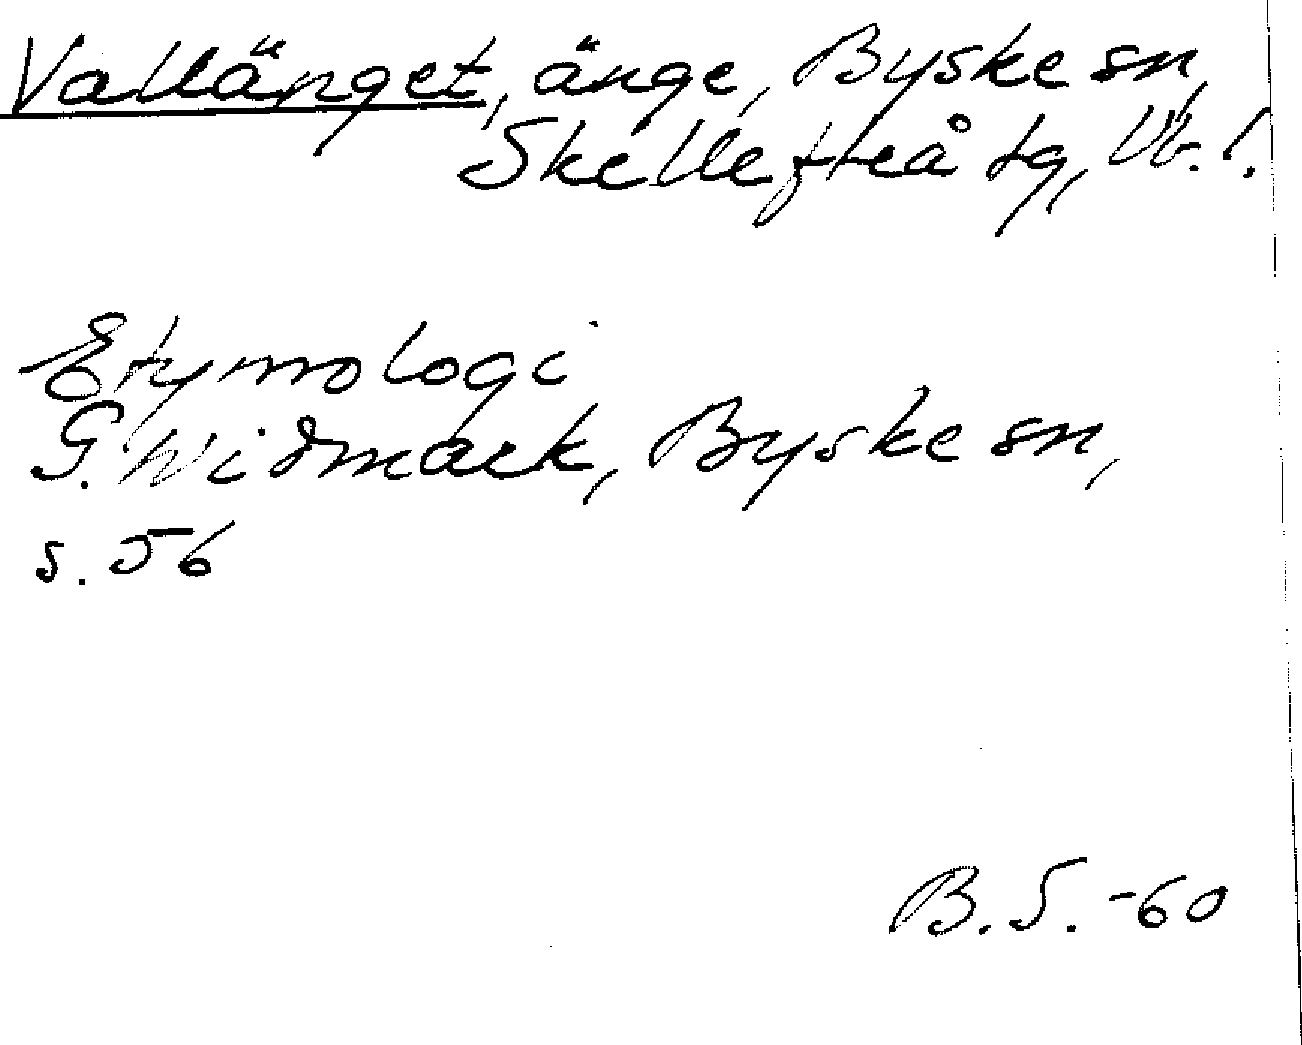 Vallänget, änge, Byske sn,
Skellefteå tg, Vb. l.
Etymologi
G. Widmark, Byske sn,
s. 56
B. S. -60